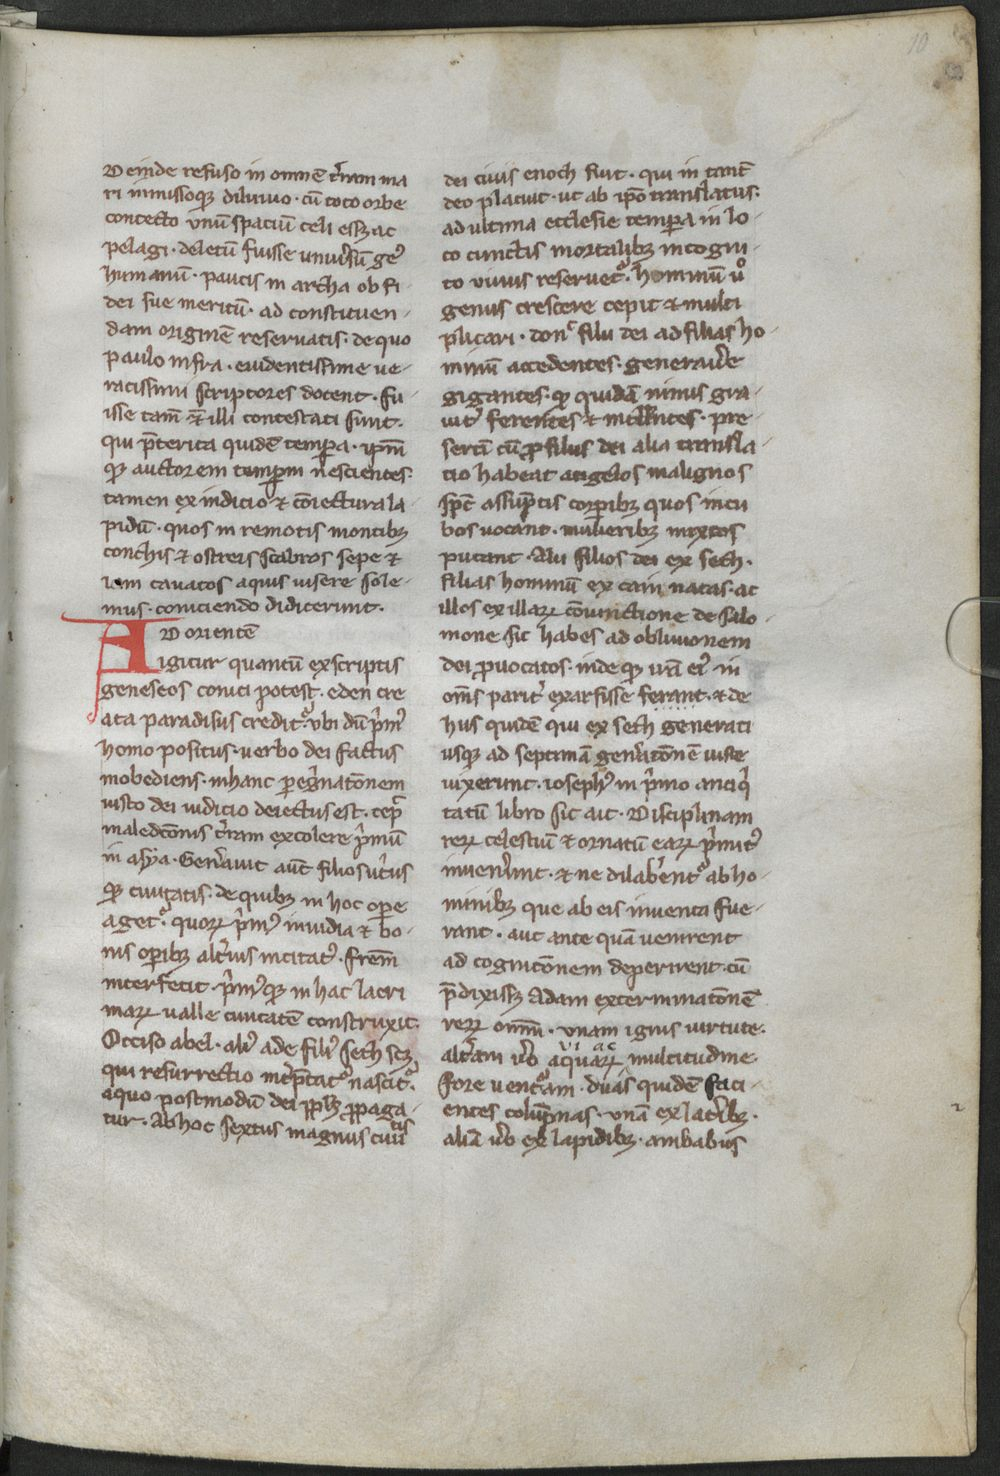 10
Deinde refuso in omnē t̄ram ma
ri inmissoqꝫ diluuio · cū toto orbe
contecto vnū spaciū celi esꝫ ac
pelagi · deletū fuisse uniuersū gen̄
humanū · paucis in archa ob fi-
dei sue meritū · ad constituen-
dam originē reseruatis · de quo
paulo infra · euidentissime ue-
racissimi scriptores docent · fu
isse tam̄ ⁊ illi contestati sunt ·
qui p̄terita quidē temp̲a · ipm̄
qꝫ auctorem temp̲m nescientes ·
tamen ex indicio ⁊ cōiectura la
pidū · quos in remotis montibꝫ
conchis ⁊ ostreis scabros sepe ⁊
iam cauatos aquis uisere sole-
mus · coniciendo didicerunt ·
AD orientē
igitur quantū ex scriptis
geneseos conici potest · eden cre
ata paradisus creditᷣ · vbi dū p̄mꝰ
homo positus · uerbo dei factus
inobediens · in hanc p̲eg̃natōnem
iusto dei iudicio deiectus est · cep̄
maledcōnis t̄ram excolere p̄mū
in asya · Gen̄auit aūt filios ut̄ius
qꝫ ciuitatis · de quibꝫ in hoc op̲e
agetᷣ · quoꝝ p̄mꝰ inuidia ⁊ bo-
nis op̲ibꝫ alt̄ius incitatꝰ · frēm
interfecit · p̄mꝰqꝫ in hac lacri
maꝝ ualle ciuitatē construxit ·
Occiso abel · aliꝰ ade filiꝰ seth scꝫ
qui resurrectio int̄p̄tatᷣ nascitᷣ ·
a quo postmodū dei pp̄ls p̲paga
tur · Ab hoc sextus magnus ciuitis
dei ciuis enoch fuit · qui in tantū
deo placuit · ut ab ip̄o translatus ·
ad ultima ecclesie temp̲a in lo-
co cunctis mortalibꝫ incogni-
to uiuus reseruetᷣ · hominū ů
genus crescere cepit ⁊ multi
plicari · donc̄ filii dei ad filias ho
minū accedentes · generauer̄e
gigantes · qd̄ quidā nimis gra-
uit̄ ferentes ⁊ intelligentes · pre-
sertī cū p̲ filius dei alia transla-
tio habeat angelos malignos
sp̄c assūptis corp̲ibꝫ quos incu
bos uocant · mulieribꝫ mixtos
putant · Alii filios dei ex seth ·
filias hominū ex cain natas · ac
illos ex illaꝝ cōiunctione de salo
mone sic habes ad obliuionem
dei p̲uocatos · inde qꝫ irā eiꝰ in
om̄s parit̄ exarsisse ferant · ⁊ de
hiis quidē qui ex seth generati
usqꝫ ad septimā gen̄atōnē iuste
uixerunt · iosephꝰ in p̄mo antiq̄
tatū libro sic ait · Disciplinam
reꝝ celestiū ⁊ ornatū eaꝝ p̄mitꝰ
inuen̄unt · ⁊ ne dilaberentᷣ ab ho-
minibꝫ que ab eis inuenta fue-
rant · aut ante quā uenirent
ad cognitōnem deperirent · cū
p̄dixisꝫ Adam exterminatōnē
reꝝ omm̄ · vnam ignis uirtute ·
alt̄am ůo vi ac aquaꝝ multitudine ·
fore uentᷣam · duas quidē faci-
entes colūpnas · vnā ex lat̄ibꝫ ·
aliā ůo ex lapidibꝫ · ambabus